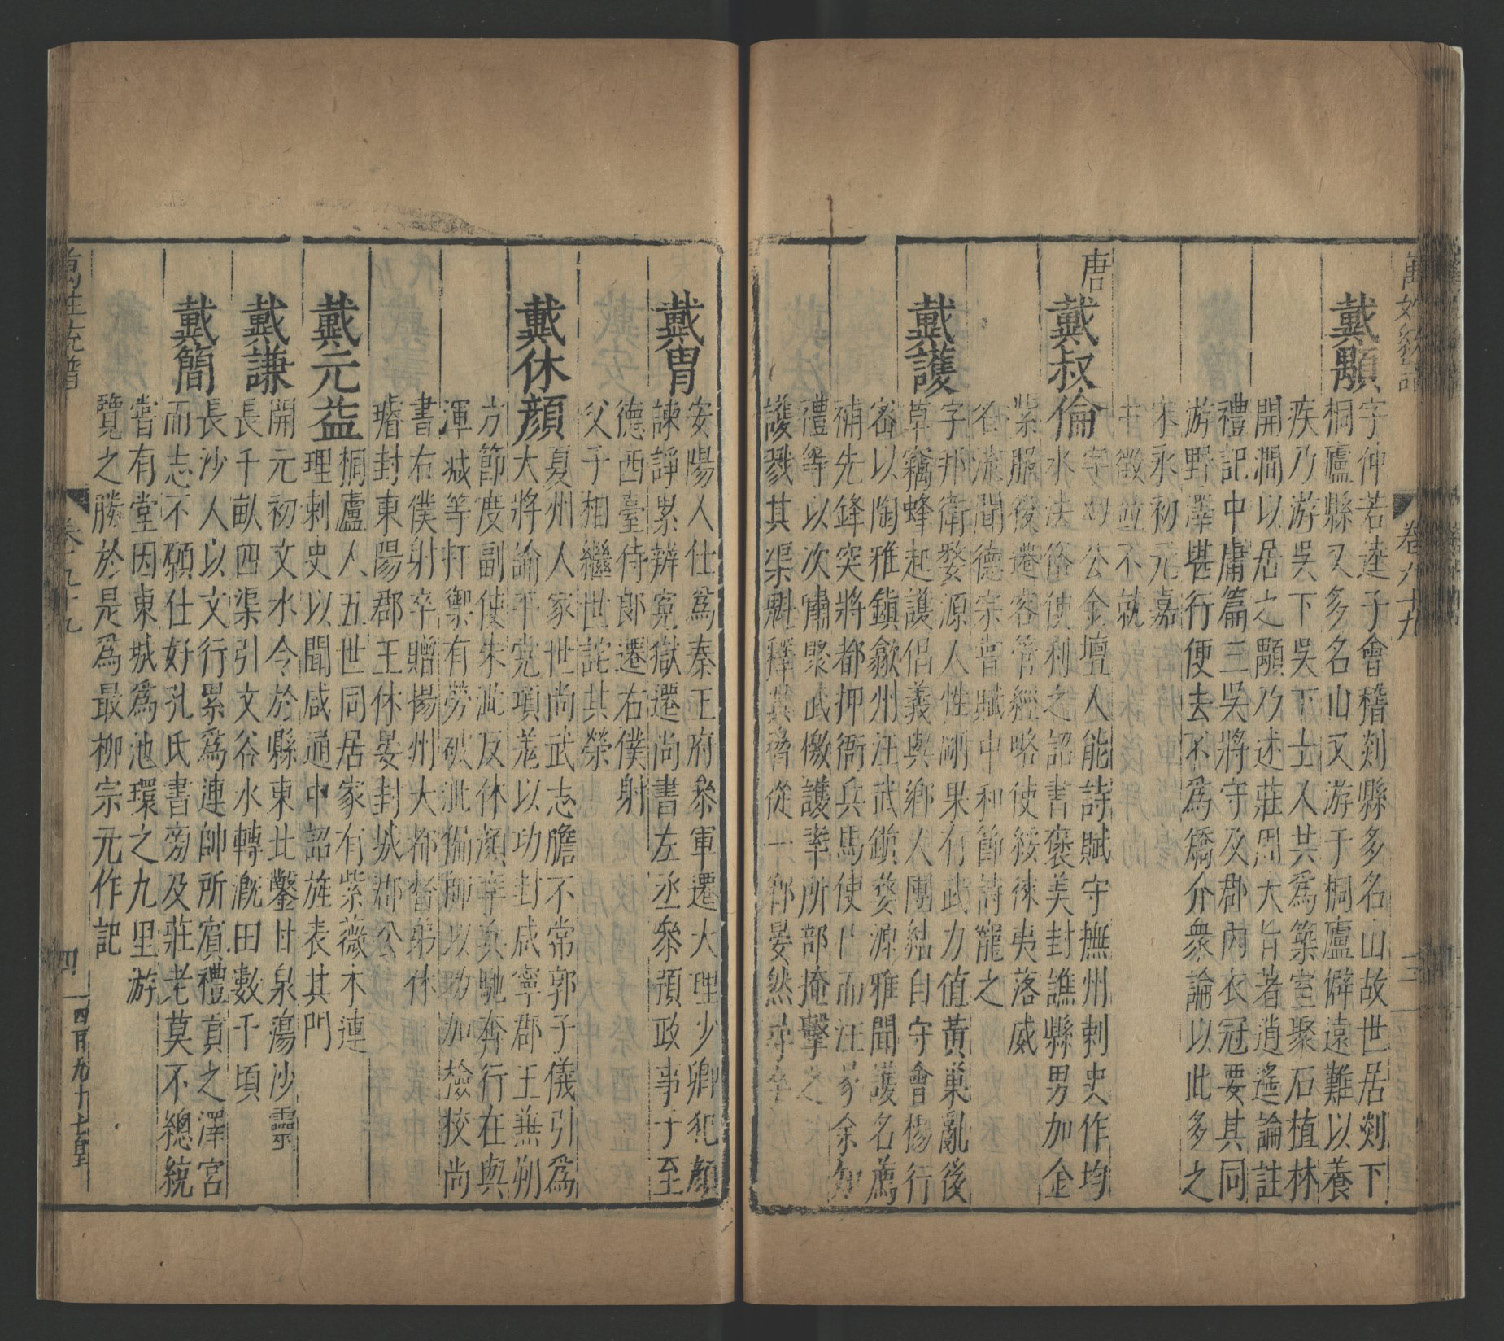 萬姓統譜
卷九十九
三
戴顒
字仲若逵子會稽剡縣多名山故世居剡下
桐廬縣又多名山又游于桐廬僻遠難以養
疾乃游吳下吳下士人共為築室聚石植林
開澗以居之顒乃述莊周大旨著逍遙論註
禮記中庸篇三吳將守及郡內衣冠要其同
游野澤堪行便去不為矯介衆論以此多之
宋永初元嘉
中徵並不就
唐
戴叔倫
字幼公金壇人能詩賦守撫州刺史作均
水法俗便利之詔書褒美封譙縣男加金
紫服後遷容管經畧使綏徠夷落威
名流聞德宗嘗賦中和節詩寵之
戴護
字邦衛婺源人性剛果有武力值黃巢亂後
草竊蜂起護侶義與鄉人團結自守會楊行
密以陶雅鎮歙州汪武鎮婺源雅聞護名薦
補先鋒突將都押衙兵馬使已而汪
禮等以次肅眾武儆護率所部掩擊之
護戮其渠魁釋其脅從一鄉晏然尋卒
戴胄
安陽人仕為秦王府叅軍遷大理少卿犯顏
諫諍累辨寃獄遷尚書左丞叅預政事子至
德西臺侍郎遷右僕射
父子相繼世詫其榮
戴休顏
夏州人家世尚武志膽不常郭子儀引為
大將論平党項羗以功封咸寧郡王兼朔
方節度副使朱泚反休顏率兵馳奔行在與
渾瑊等打禦有勞破泚偏師以功加檢校尚
書右僕射卒贈揚州大都督弟休
璿封東陽郡王休晏封城郡公
戴元益
桐廬人五世同居家有紫薇木連
理刺史以聞咸通中詔旌表其門
戴謙
開元初文水令於縣東北鑿甘泉蕩沙靈
長千畝四渠引文谷水轉溉田數千頃
戴簡
長沙人以文行累為連帥所賔禮貢之澤宮
而志不願仕好孔氏書旁及莊老莫不總統
嘗有堂因東城為池環之九里游
覽之勝於是為最柳宗元作記
萬姓統譜
卷九十九
四